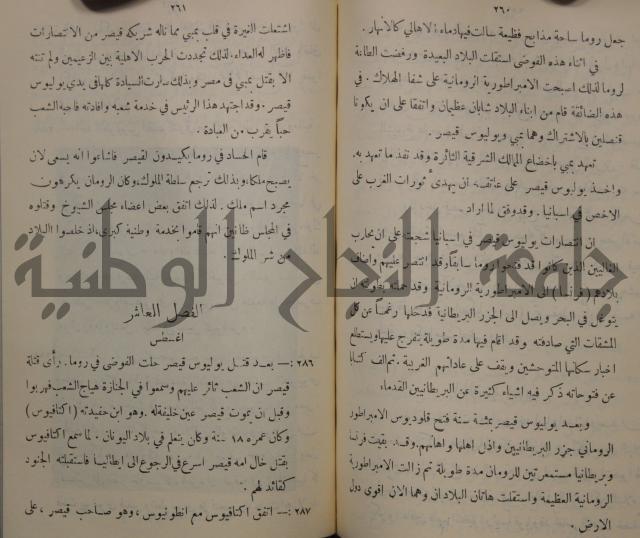 ٢٦٠
جعل روما ساحة مذابح فظيمة سالت فيها دماء الاهالي كالانهار.
في اثناء هذه الفوضى استقلت البلاد البعيدة ورفضت الطاعة
لروما لذلك اصبحت الامبراطورية الرومانية على شفا الهلاك. في
هذه الضائقة قام من ابناء البلاد شابان عظيمان واتفقا على ان يكونا
قنصلين بالاشتراك وهما بمبي ويوليوس قيصر.
تعهد بمبي باخضاع الممالك الشرقية الثائرة وقد نفذ ما تعهد به.
واخذ يوليوس قيصر على عاتقه ان يهدئ ثورات الغرب على
الاخص في اسبانيا. وقد وفق لما اراد.
ان انتصارات يوليوس قيصر في اسبانيا شجعته على ان يحارب
الغاليين الذين كانوا قد فتحوا روما سابقاً وقد انتصر عليهم واضاف
بلادهم (فرنسا) الى الامبراطورية الرومانية وقد حملته بطولته ان
يتوغل في البحر ويصل الى الجزر البريطانية فدخلها رغماً عن كل
المشقات التي صادفته وقد اقام فيها مدة طويلة يتفرج عليها ويستطلع
اخبار سكانها المتوحشين ويقف على عاداتهم الغريبة. ثم الف كتابا
عن فتوحاته ذكر فيه اشياء كثيرة عن البريطانيين القدماء
وبعد يوليوس قيصر بمئة سنة فتح قلوديوس الامبراطور
الروماني جزر البريطانيين واذل اهلها واهانهم وقد بقيت فرنسا
وبريطانيا مستعمرتين للرومان مدة طويلة ثم زالت الامبراطورية
الرومانية العظيمة واستقلت هاتان البلادان وهما الان اقوى دول
الارض.
٢٦١
اشتعلت الغيرة في قلب بمبي مما ناله شريكه قيصر من الانتصارات
فاظهر له العداء. لذلك تجددت الحرب الاهلية بين الزعيمين ولم تنته
الا بقتل بمبي في مصر وبذلك سارت السيادة كلها في يدي يوليوس
قيصر. وقد اجتهد هذا الرئيس في خدمة شعبه وافادته فاحبه الشعب
حباً يقرب من العبادة.
قام الحساد في روما يكيدون لقيصر فاشاعوا انه يسعى لان
يصبح ملكا وبذلك ترجع سلطة الملوك، وكان الرومان يكرهون
مجرد اسم ملك. لذلك اتفق بعض اعضاء مجلس الشيوخ وقتلوه
في المجلس ظانين انهم قاموا بخدمة وطنية كبرى، اذ خلصوا البلاد
من شر الملوك.
الفصل العاشر
اغسطس
٢٨٦ :— بعد قتل يوليوس قيصر حلت الفوضى في روما. رأى قتلة
قيصر ان الشعب ثائر عليهم وسمعوا في الجنازة هياج الشعب فهربوا
وقبل ان يموت قيصر عين خليفة له. وهو ابن حفيدته (اكتافيوس)
وكان عمره ١٨ سنة وكان يتعلم في بلاد اليونان. لما سمع اكتافيوس
بقتل خال امه قيصر اسرع في الرجوع الى ايطاليا فاستقبلته الجنود
كقائد لهم.
٢٨٧ :— اتفق اكتافيوس مع انطونيوس، وهو صاحب قيصر، على
جامعة النجاح الوطنية